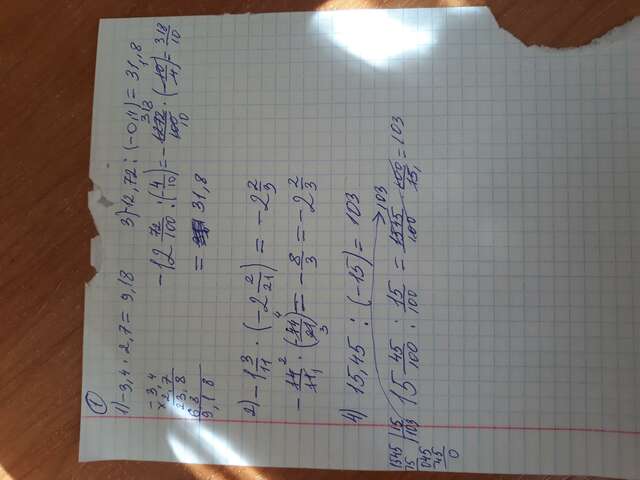 ①
1) -3,4 · 2,7 = 9,18
-3,4
× 2,7
23,8
68
9,18
3) -12,72 : (-0,4) = 31,8
-12 72/100 : (-4/10) = -1272/100 · (-10/4) = 318/10
= 31,8
2) -1 3/11 · (-2 2/21) = -2 2/3
-14/11 · (44/21) = -8/3 = -2 2/3
4) 15,45 : (-15) = 103
15 45/100 : 15/100 = 1545/100 · 100/15 = 103
103
1545 | 15
15 | 103
045
45
0